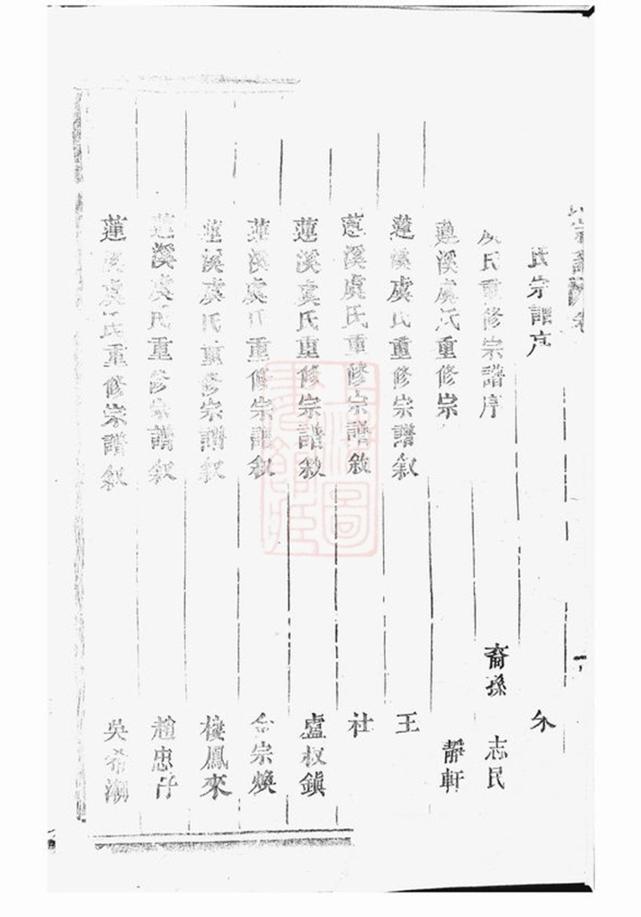 氏宗譜序
氏重修宗譜序 裔孫 志民
蓮溪虞氏重修宗 靜軒
蓮溪虞氏重修宗譜叙 王
蓮溪虞氏重修宗譜敘 杜
蓮溪虞氏重修宗譜敘 盧叔鎮
蓮溪虞氏重修宗譜叙 宗煥
蓮溪虞氏重修宗譜叙 樓鳳來
蓮溪虞氏重修宗譜叙 趙忠
蓮溪虞氏重修宗譜叙 吳希潮